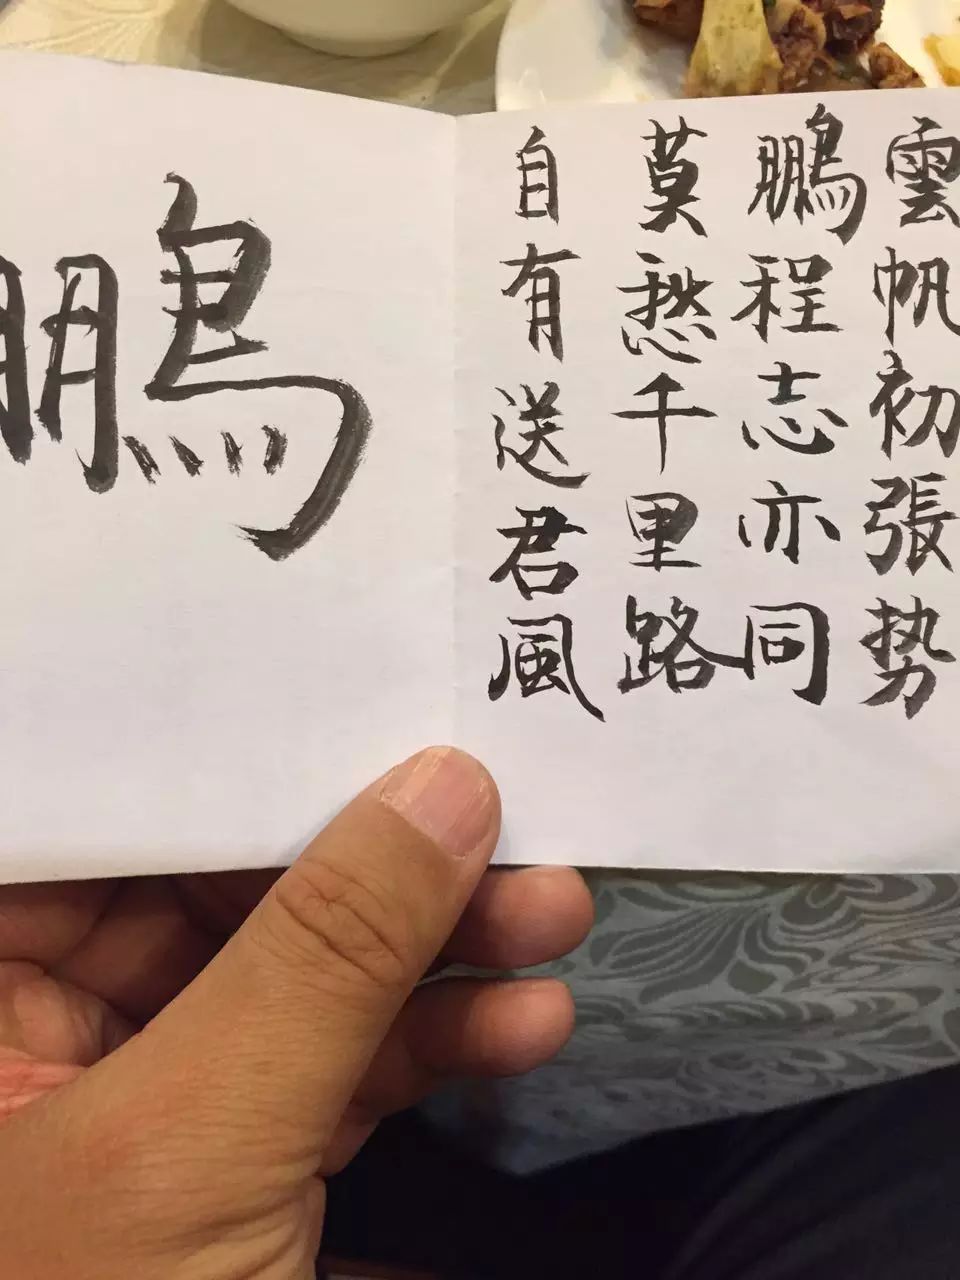 雲帆初張势
鵬程志亦同
莫愁千里路
自有送君風
鵬